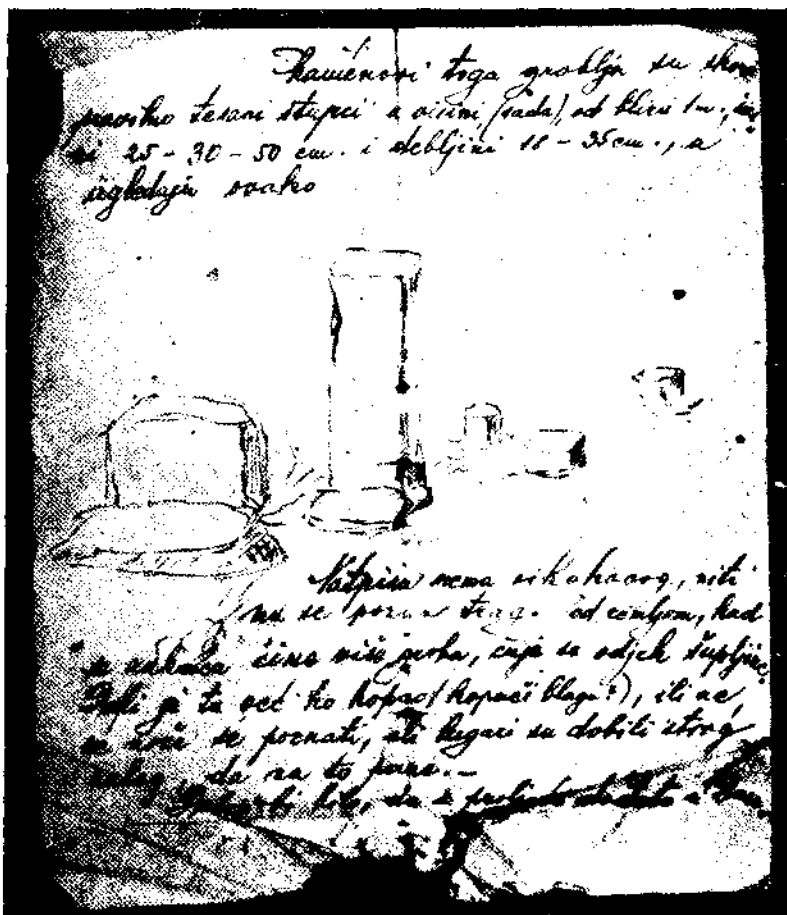 Kamenovi toga groblja su skoro
pravilno tesani stupci u visini (sada) od blizu 1 m., širi
ni 25 - 30 - 50 cm. i debljini 18 - 35 cm., a
izgledaju ovako
Natpisa nema nikakvog, niti
mu se pozna trag. Pod zemljom, kad
se čine više groba, čuje se odjek šupljine
Da li je tu već ko kopao (kopači blaga!), ili ne,
ne može se poznati, ali lugari su dobili strog
nalog da na to paze.-
bilo, da se